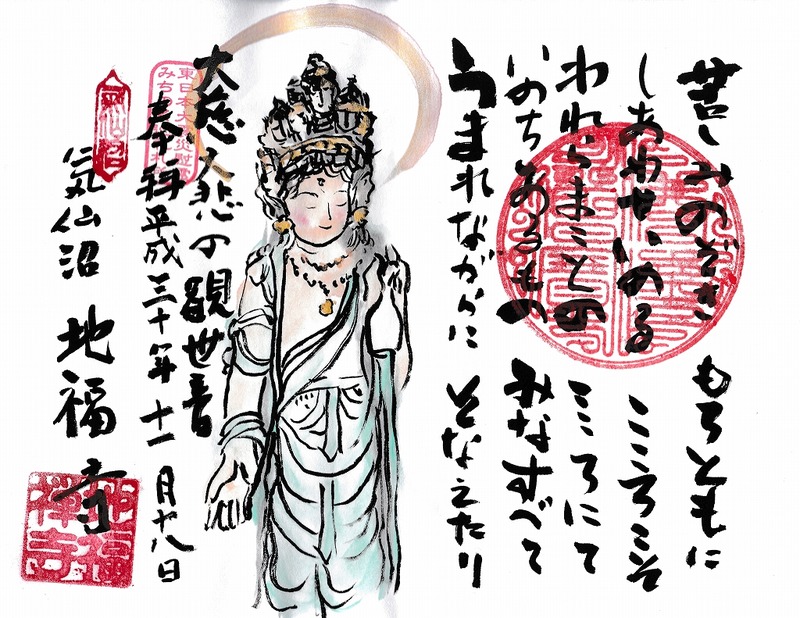 苦しみのぞき もろともに
しあわせいのる こころこそ
われらまことの こころにて
いのちあるもの みなすべて
うまれながらに そなえたり
大慈大悲の観世音
東日本大
みち
奉拝 平成三十年 十一月廿八日
気仙沼
気仙沼 地福寺
地福
禅寺